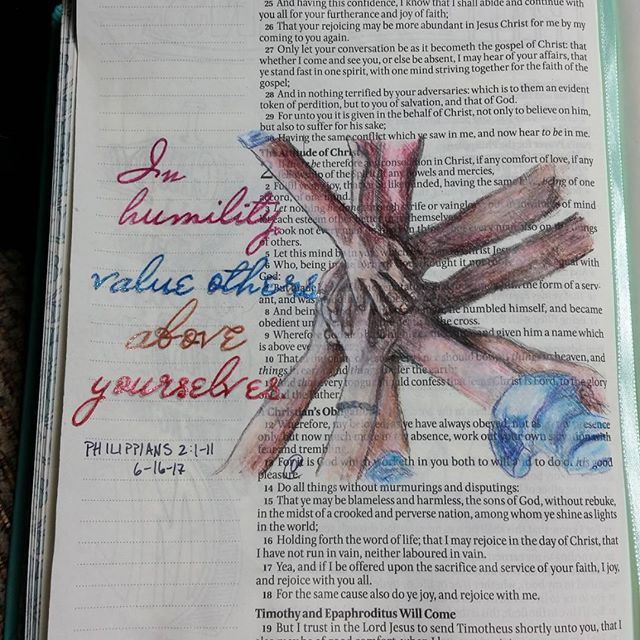 In
humility
value others
above
yourselves.
PHILIPPIANS 2:1-11
6-16-17
25 And having this confidence, I know that I shall abide and continue with
you all for your furtherance and joy of faith;
26 That your rejoicing may be more abundant in Jesus Christ for me by my
coming to you again.
27 Only let your conversation be as it becometh the gospel of Christ: that
whether I come and see you, or else be absent, I may hear of your affairs, that
ye stand fast in one spirit, with one mind striving together for the faith of the
gospel;
28 And in nothing terrified by your adversaries: which is to them an evident
token of perdition, but to you of salvation, and that of God.
29 For unto you it is given in the behalf of Christ, not only to believe on him,
but also to suffer for his sake;
30 Having the same conflict which ye saw in me, and now hear to be in me.
The Attitude of Christ
2 be therefore any consolation in Christ, if any comfort of love, if any
of the bowels and mercies,
2 Fulfil ye my joy, that minded, having the same being of one
3 Let nothing strife or vainglory of mind
let each esteem other themselves
Look not every on his own things every man also on the
of others.
5 Let this mind be in Christ Jesus
6 Who, being in the thought it not equal with
God:
the form of a serv-
ant, and was
8 And being he humbled himself, and became
obedient unto the cross.
9 Wherefore and given him a name which
is above every
10 That at should bow, things in heaven, and
things in earth, and things under the earth;
And that every tongue should confess that Jesus Christ is Lord, to the glory
the Father.
Christian's
12 Wherefore, my beloved, as ye have always obeyed, not as presence
only, but now much more in absence, work out your own salvation with
fear and trembling.
For it is God which worketh in you both to will and to do of his good
pleasure.
14 Do all things without murmurings and disputings:
15 That ye may be blameless and harmless, the sons of God, without rebuke,
in the midst of a crooked and perverse nation, among whom ye shine as lights
in the world;
16 Holding forth the word of life; that I may rejoice in the day of Christ, that
I have not run in vain, neither laboured in vain.
17 Yea, and if I be offered upon the sacrifice and service of your faith, I joy,
and rejoice with you all.
18 For the same cause also do ye joy, and rejoice with me.
Timothy and Epaphroditus Will Come
19 But I trust in the Lord Jesus to send Timotheus shortly unto you, that I